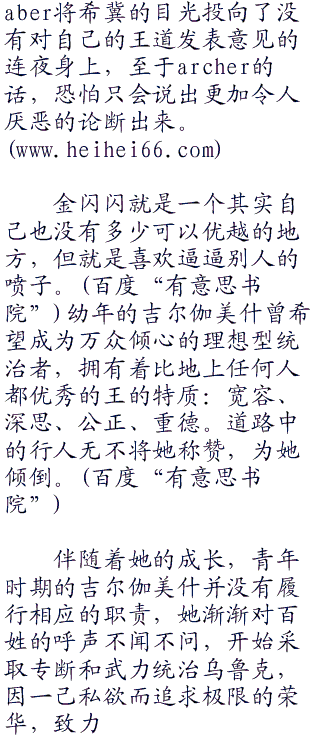 aber将希冀的目光投向了没
有对自己的王道发表意见的
连夜身上，至于archer的
话，恐怕只会说出更加令人
厌恶的论断出来。
(www.heihei66.com)
金闪闪就是一个其实自
己也没有多少可以优越的地
方，但就是喜欢逼逼别人的
喷子。(百度“有意思书
院”)幼年的吉尔伽美什曾希
望成为万众倾心的理想型统
治者，拥有着比地上任何人
都优秀的王的特质：宽容、
深思、公正、重德。道路中
的行人无不将她称赞，为她
倾倒。(百度“有意思书
院”)
伴随着她的成长，青年
时期的吉尔伽美什并没有履
行相应的职责，她渐渐对百
姓的呼声不闻不问，开始采
取专断和武力统治乌鲁克，
因一己私欲而追求极限的荣
华，致力